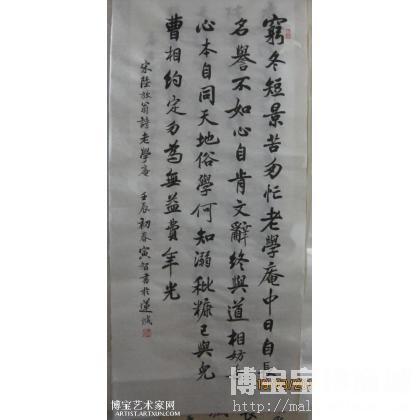 窮冬短景苦匆忙老學庵中日自長
名譽不如心自肯文辭終與道相妨
心本自同天地俗學何知溺秕糠已與兒
曹相約定勿為無益費年光
宋陸放翁詩老學庵 壬辰初春寅智書於蓮城
博宝艺术家网